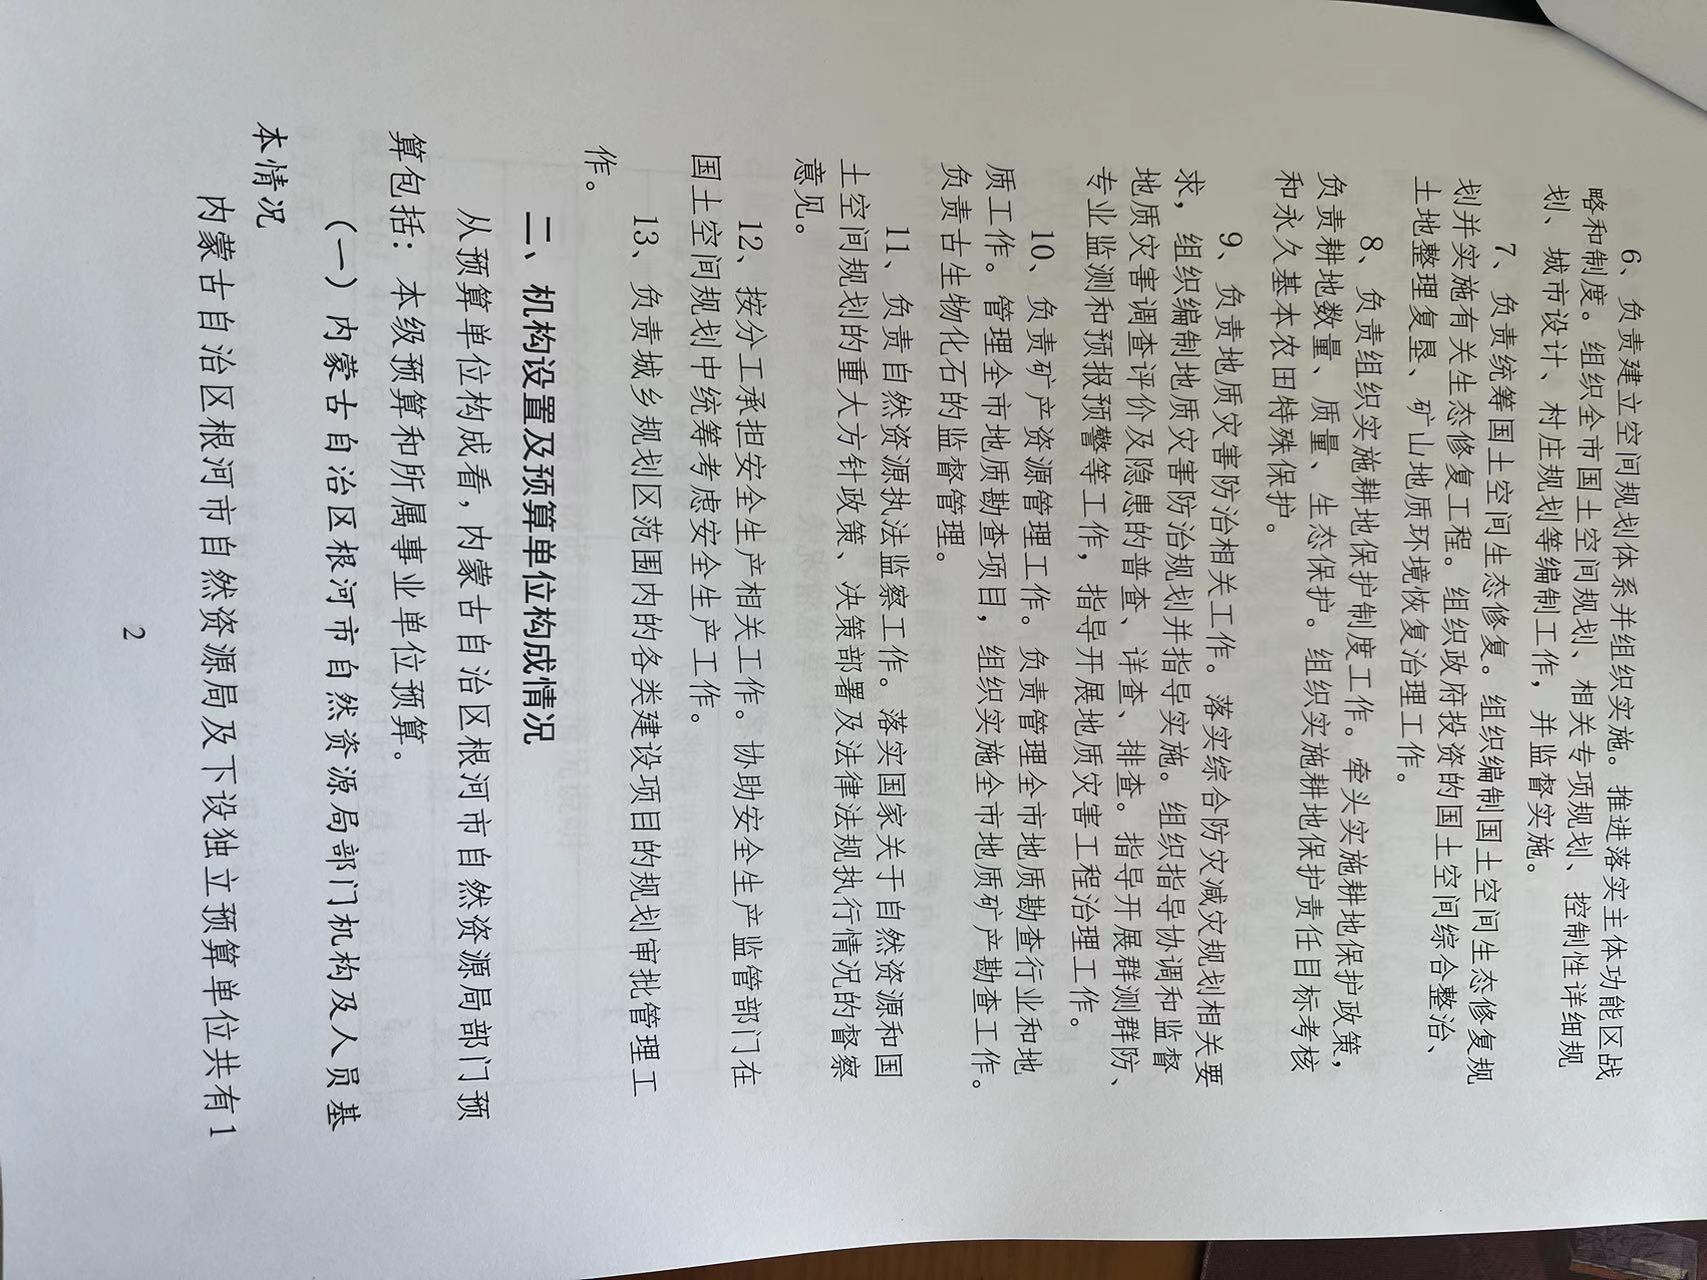 6、负责建立空间规划体系并组织实施。推进落实主体功能区战
略和制度。组织全市国土空间规划、相关专项规划、控制性详细规
划、城市设计、村庄规划等编制工作，并监督实施。
7、负责统筹国土空间生态修复。组织编制国土空间生态修复规
划并实施有关生态修复工程。组织政府投资的国土空间综合整治、
土地整理复垦、矿山地质环境恢复治理工作。
8、负责组织实施耕地保护制度工作。牵头实施耕地保护政策，
负责耕地数量、质量、生态保护。组织实施耕地保护责任目标考核
和永久基本农田特殊保护。
9、负责地质灾害防治相关工作。落实综合防灾减灾规划相关要
求，组织编制地质灾害防治规划并指导实施。组织指导协调和监督
地质灾害调查评价及隐患的普查、详查、排查。指导开展群测群防、
专业监测和预报预警等工作，指导开展地质灾害工程治理工作。
10、负责矿产资源管理工作。负责管理全市地质勘查行业和地
质工作。管理全市地质勘查项目，组织实施全市地质矿产勘查工作。
负责古生物化石的监督管理。
11、负责自然资源执法监察工作。落实国家关于自然资源和国
土空间规划的重大方针政策、决策部署及法律法规执行情况的督察
意见。
12、按分工承担安全生产相关工作。协助安全生产监管部门在
国土空间规划中统筹考虑安全生产工作。
13、负责城乡规划区范围内的各类建设项目的规划审批管理工
作。
二、机构设置及预算单位构成情况
从预算单位构成看，内蒙古自治区根河市自然资源局部门预
算包括：本级预算和所属事业单位预算。
（一）内蒙古自治区根河市自然资源局部门机构及人员基
本情况
内蒙古自治区根河市自然资源局及下设独立预算单位共有1
2